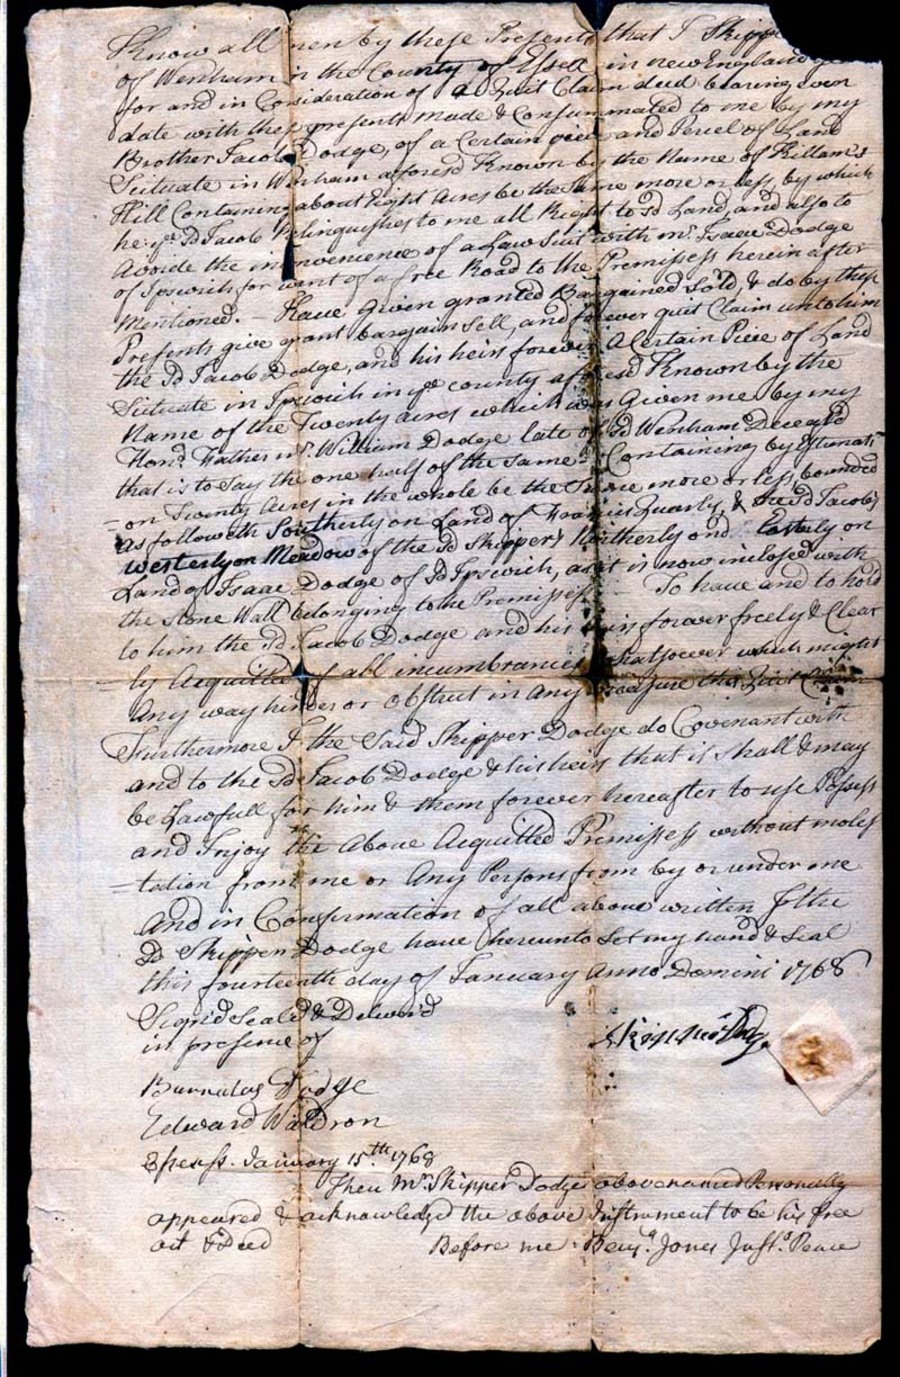 Know all men by these Presents that I Skipp
of Wenham in the County of Essex in new England
for and in Consideration of a Quit Claim deed bearing even
date with these presents made & Consummated to me by my
Brother Jacob Dodge, of a Certain piece and Percel of Land
Scituate in Wenham aforesd Known by the Name of Killam's
Hill Containing about Eight Acres be the same more or less, by which
he ye sd Jacob Relinquishes to me all Right to sd Land, and also to
Avoide the inconvenience of a Law Suit with mr Isaac Dodge
of Ipswich for want of a free Road to the Premisses herein after
Mentioned. — Have Given granted Bargained Sold, & do by these
Presents give grant bargain Sell, and forever quit Claim unto him
the sd Jacob Dodge, and his heirs forever A Certain Piece of Land
Scituate in Ipswich in ye county aforesd Known by the
Name of the Twenty acres which was Given me by my
Hond Father mr William Dodge late of sd Wenham Deceasd
that is to Say the one half of the same Containing by Estimati
=on Twenty Acres in the whole be the Same more or less, bounded
as followeth Southerly on Land of Francis Quarly, & the sd Jacobs
Westerly on Meadow of the sd Skippers Northerly and Easterly on
Land of Isaac Dodge of sd Ipswich, as it is now inclosed with
the stone Wall belonging to the Premisses To have and to hold
to him the sd Jacob Dodge and his heirs forever freely & Clear
ly Acquitted of all incumbrances whatsoever which might
Any way hinder or obstruct in any measure this Quit Claim
Furthermore I the Said Skipper Dodge do Covenant with
and to the sd Jacob Dodge & his heirs that it shall & may
be Lawfull for him & them forever hereafter to use Possess
and Injoy the Above Acquitted Premisses without moles
=tation from me or Any Persons from by or under me
And in Confirmation of all above written I the
sd Skipper Dodge have hereunto Set my hand & Seal
this fourteenth day of January Anno Domini 1768
Signd Seald & Deliverd
in presence of
Skipper Dodge
Barnabas Dodge
Edward Waldron
Essex ss. January 15th 1768
Then Mr Skipper Dodge above named Personally
appeared & acknowledged the above Instrument to be his free
act & Deed Before me Benja Jones Just. Peace